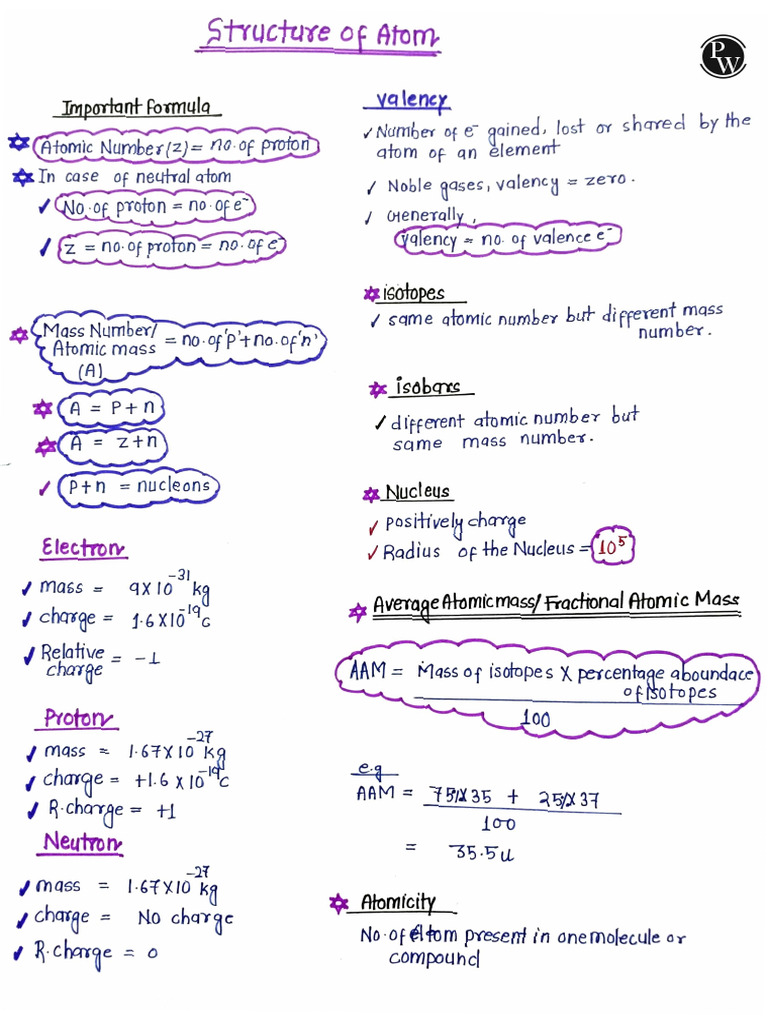 Structure of Atom
PW
Important formula
Atomic Number(z) = no.of proton
In case of neutral atom
No.of proton = no.of e⁻
z = no.of proton = no.of e⁻
Mass Number/
Atomic mass = no.of 'p'+no.of 'n'
(A)
A = P+n
A = z+n
P+n = nucleons
Electron
mass = 9X10⁻³¹ kg
charge = 1.6X10⁻¹⁹c
Relative
charge = -1
Proton
mass = 1.67X10⁻²⁷ kg
charge = +1.6 X10⁻¹⁹C
R.charge = +1
Neutron
mass = 1.67X10⁻²⁷ kg
charge = No charge
R.charge = 0
valency
Number of e⁻ gained, lost or shared by the
atom of an element
Noble gases, valency = zero.
Generally,
valency = no. of valence e⁻
isotopes
same atomic number but different mass
number.
isobars
different atomic number but
same mass number.
Nucleus
positively charge
Radius of the Nucleus = 10⁵
Average Atomic mass/ Fractional Atomic Mass
AAM = Mass of isotopes X percentage aboundace
of isotopes
100
e.g
AAM = 75%X35 + 25%X37
100
= 35.5u
Atomicity
No.of Atom present in one molecule or
compound